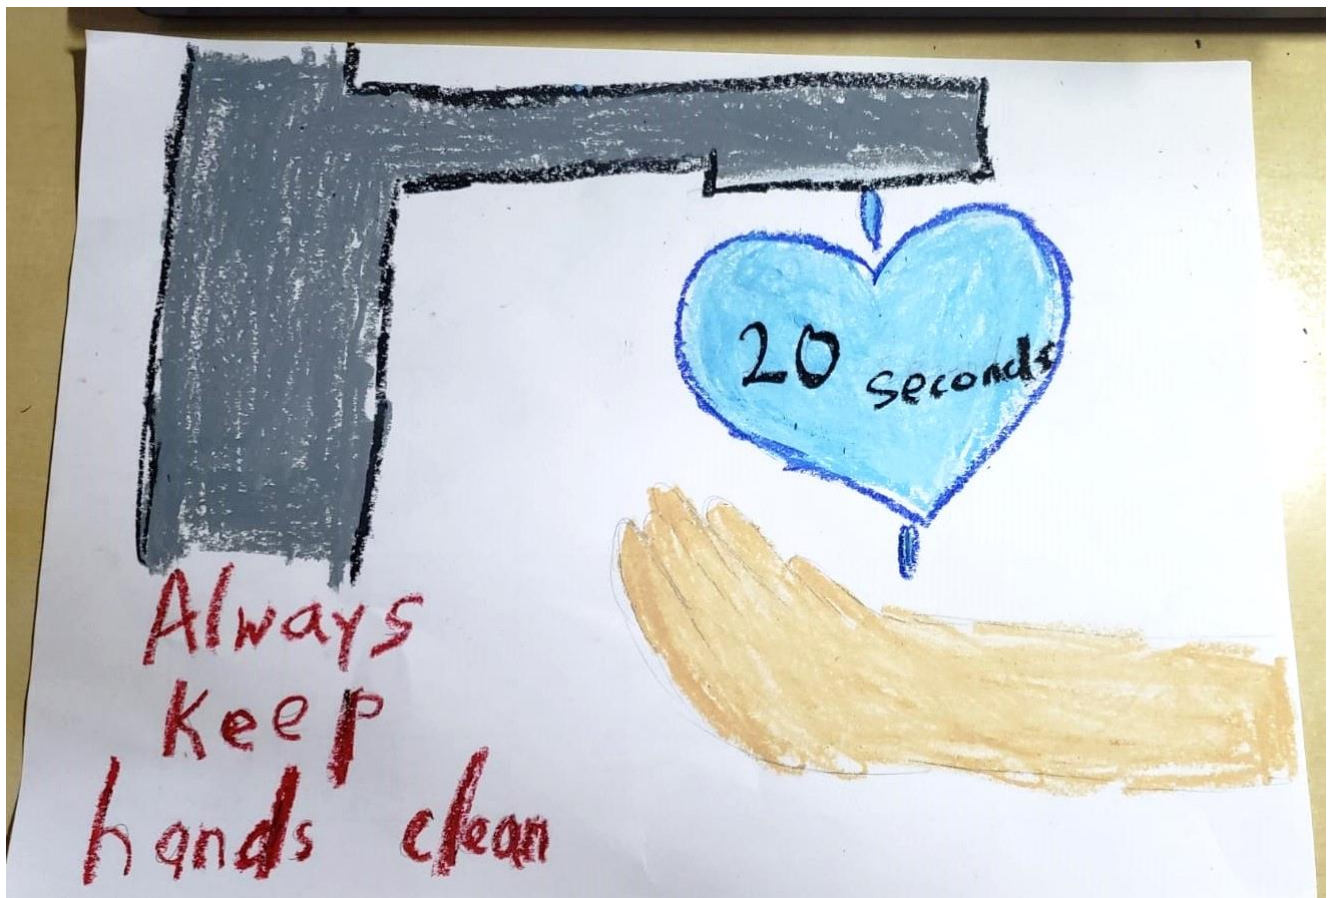 20 seconds
Always
keep
hands clean